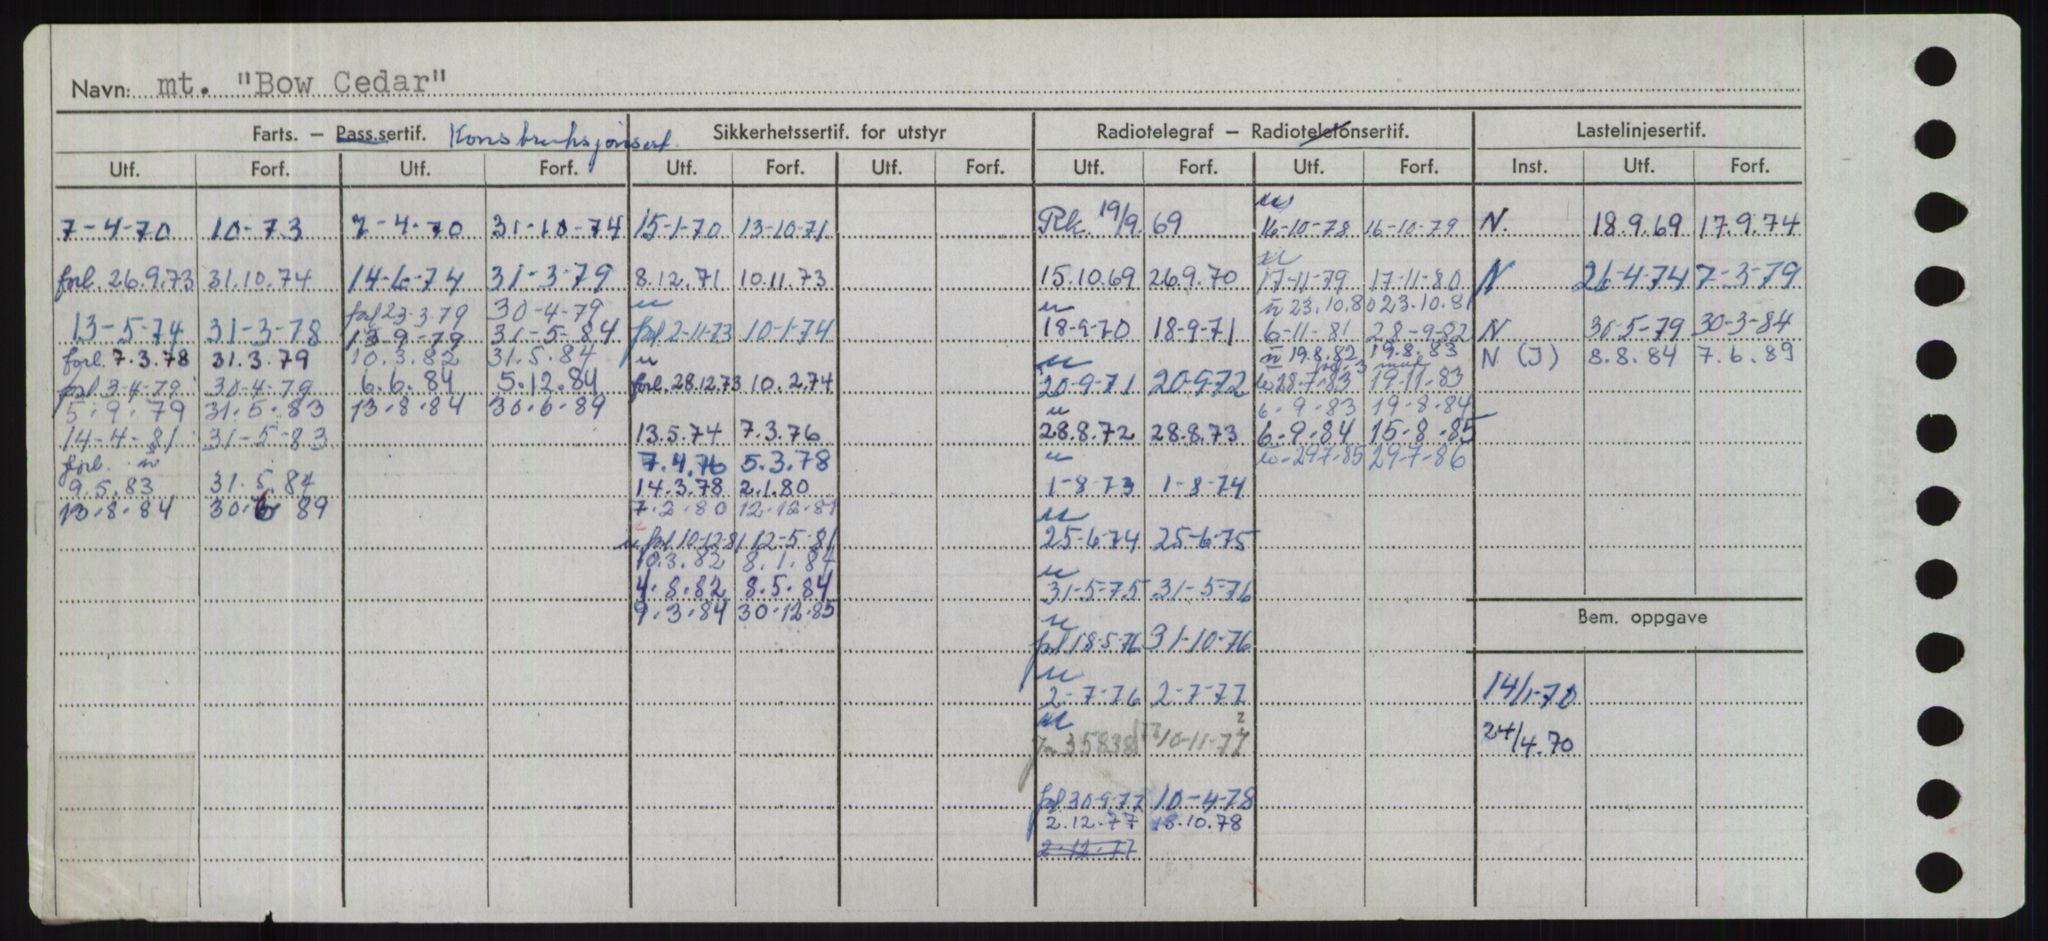 Navn: mt. "Bow Cedar"
Farts. – Pass.sertif. Konstruksjonsert. Sikkerhetssertif. for utstyr Radiotelegraf – Radiotelefonsertif. Lastelinjesertif.
Utf. Forf. Utf. Forf. Utf. Forf. Utf. Forf. Utf. Forf. Utf. Forf. Inst. Utf. Forf.
7-4-70 10-73 7-4-70 31-10-74 15-1-70 13-10-71 Rk. 19/9. 69 16-10-78 16-10-79 N. 18.9.69 17.9.74
forl. 26.9.73 31.10.74 14-6-74 31-3-79 8.12.71 10.11.73 15.10.69 26.9.70 17-11-79 17-11-80 N 26-4-74 7-3-79
forl 23-3-79 30-4-79 23.10.80 23.10.81
13-5-74 31-3-78 13-9-79 31-5-84 forl 2-11-73 10-1-74 18-9-70 18-9-71 6-11-81 28-9-82 N 30-5-79 30-3-84
forl. 7.3.78 31.3.79 10.3.82 31.5.84 19.8.82 19.8.83 N (J) 8.8.84 7.6.89
forl 3-4-79 30-4-79 6.6.84 5.12.84 forl. 28.12.73 10.2.74 20-9-71 20-9-72 28-7-83 19-11-83
5.9.79 31.5.83 13.8.84 30.6.89 6.9.83 19-8-84
14-4-81 31-5-83 13.5.74 7.3.76 28.8.72 28.8.73 6.9.84 15-8-85
forl. 7.4.76 5.3.78 29.7.85 29-7-86
9.5.83 31.5.84 14.3.78 2.1.80 1-8-73 1-8-74
13.8.84 30.6 89 7.2.80 12.12.81
forl 10-12-81 12-5-81 25-6-74 25-6-75
10.3.82 8.1.84
4.8.82 8.5.84 31-5-75 31-5-76
9.3.84 30.12.85
Bem. oppgave
forl 18-5-76 31-10-76
2-7-76 2-7-77 14/1-70
35838 10-11-77 24/4.70
forl 30-9-77 10-4-78
2.12.77 18.10.78
2.12.77